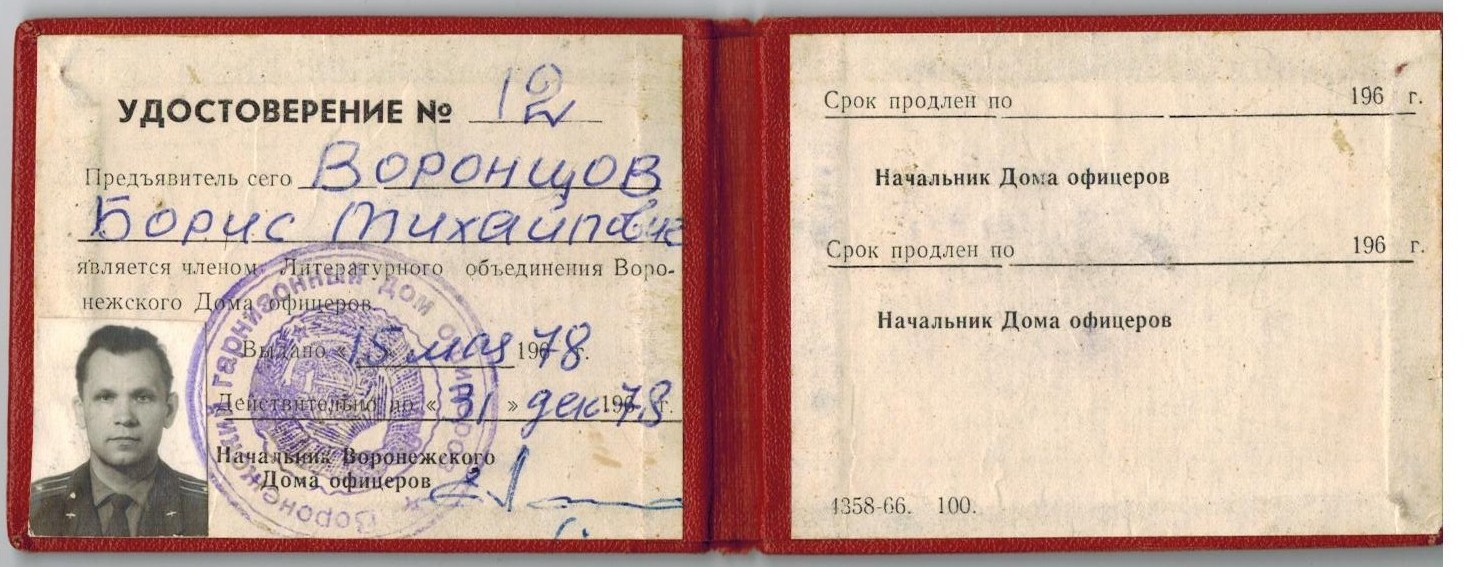 УДОСТОВЕРЕНИЕ № 12
Предъявитель сего Воронцов
Борис Михайлович
является членом Литературного объединения Воро-
нежского Дома офицеров.
Выдано «15» мая 1978 г.
Действительно по «31» дек 1978 г.
Начальник Воронежского
Дома офицеров
Воронежский гарнизонный дом офицеров
Срок продлен по 196 г.
Начальник Дома офицеров
Срок продлен по 196 г.
Начальник Дома офицеров
4358-66. 100.